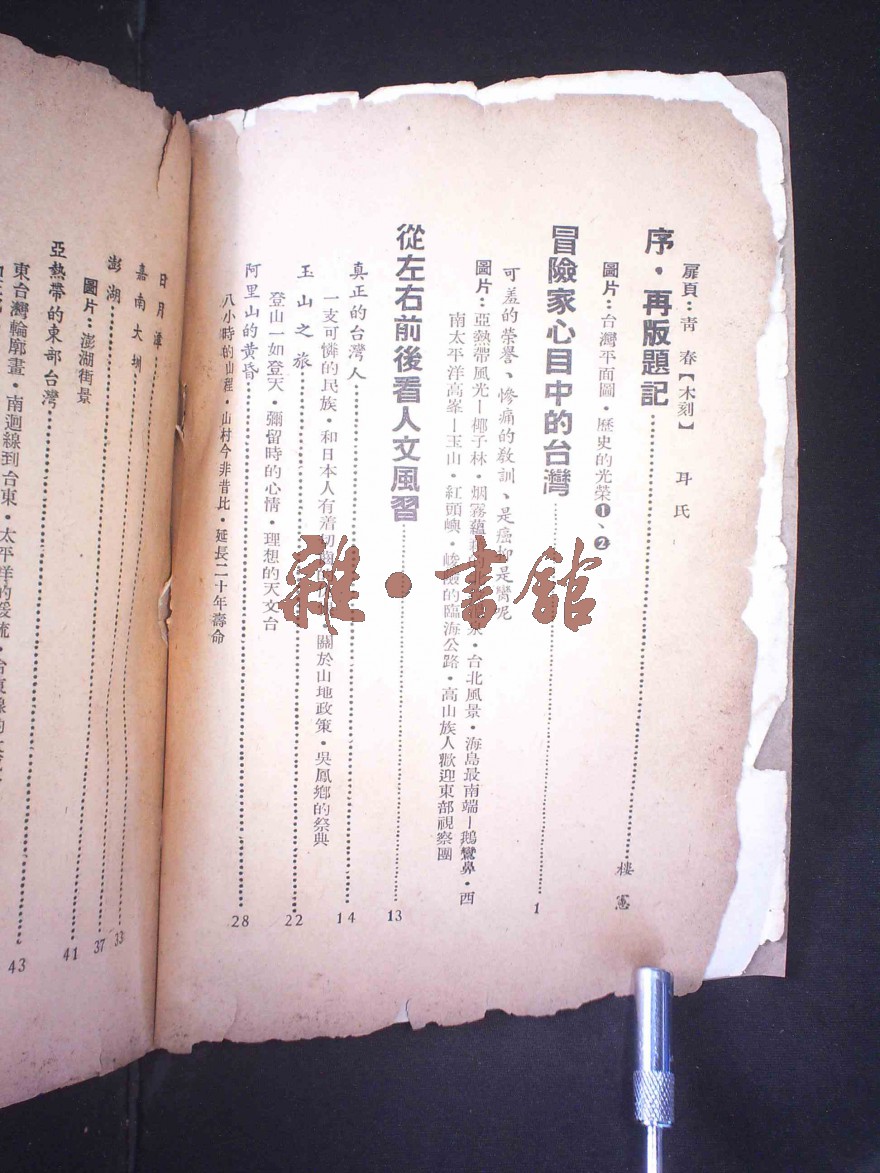 扉頁：靑 春【木刻】 耳氏
序・再版題記 樓 憲
圖片：台灣平面圖・歷史的光榮❶、❷
冒險家心目中的台灣 1
可羞的榮譽、慘痛的敎訓、是癌抑是臂呢
圖片：亞熱帶風光—椰子林・烟霧蘊 ・台北風景・海島最南端—鵝鸞鼻・西
南太平洋高峯—玉山・紅頭嶼・峻險的臨海公路・高山族人歡迎東部視察團
從左右前後看人文風習 13
真正的台灣人 14
一支可憐的民族・和日本人有着切齒 ・關於山地政策・吳鳳鄉的祭典
玉山之旅 22
登山一如登天・彌留時的心情・理想的天文台
阿里山的黄昏 28
八小時的山程・山村今非昔比・延長二十年壽命
日月潭 33
嘉南大圳 37
澎湖 41
圖片：澎湖街景
亞熱帶的東部台灣 43
東台灣輪廓畫・南迴線到台東・太平洋的暖流・台東線的
雜・書館